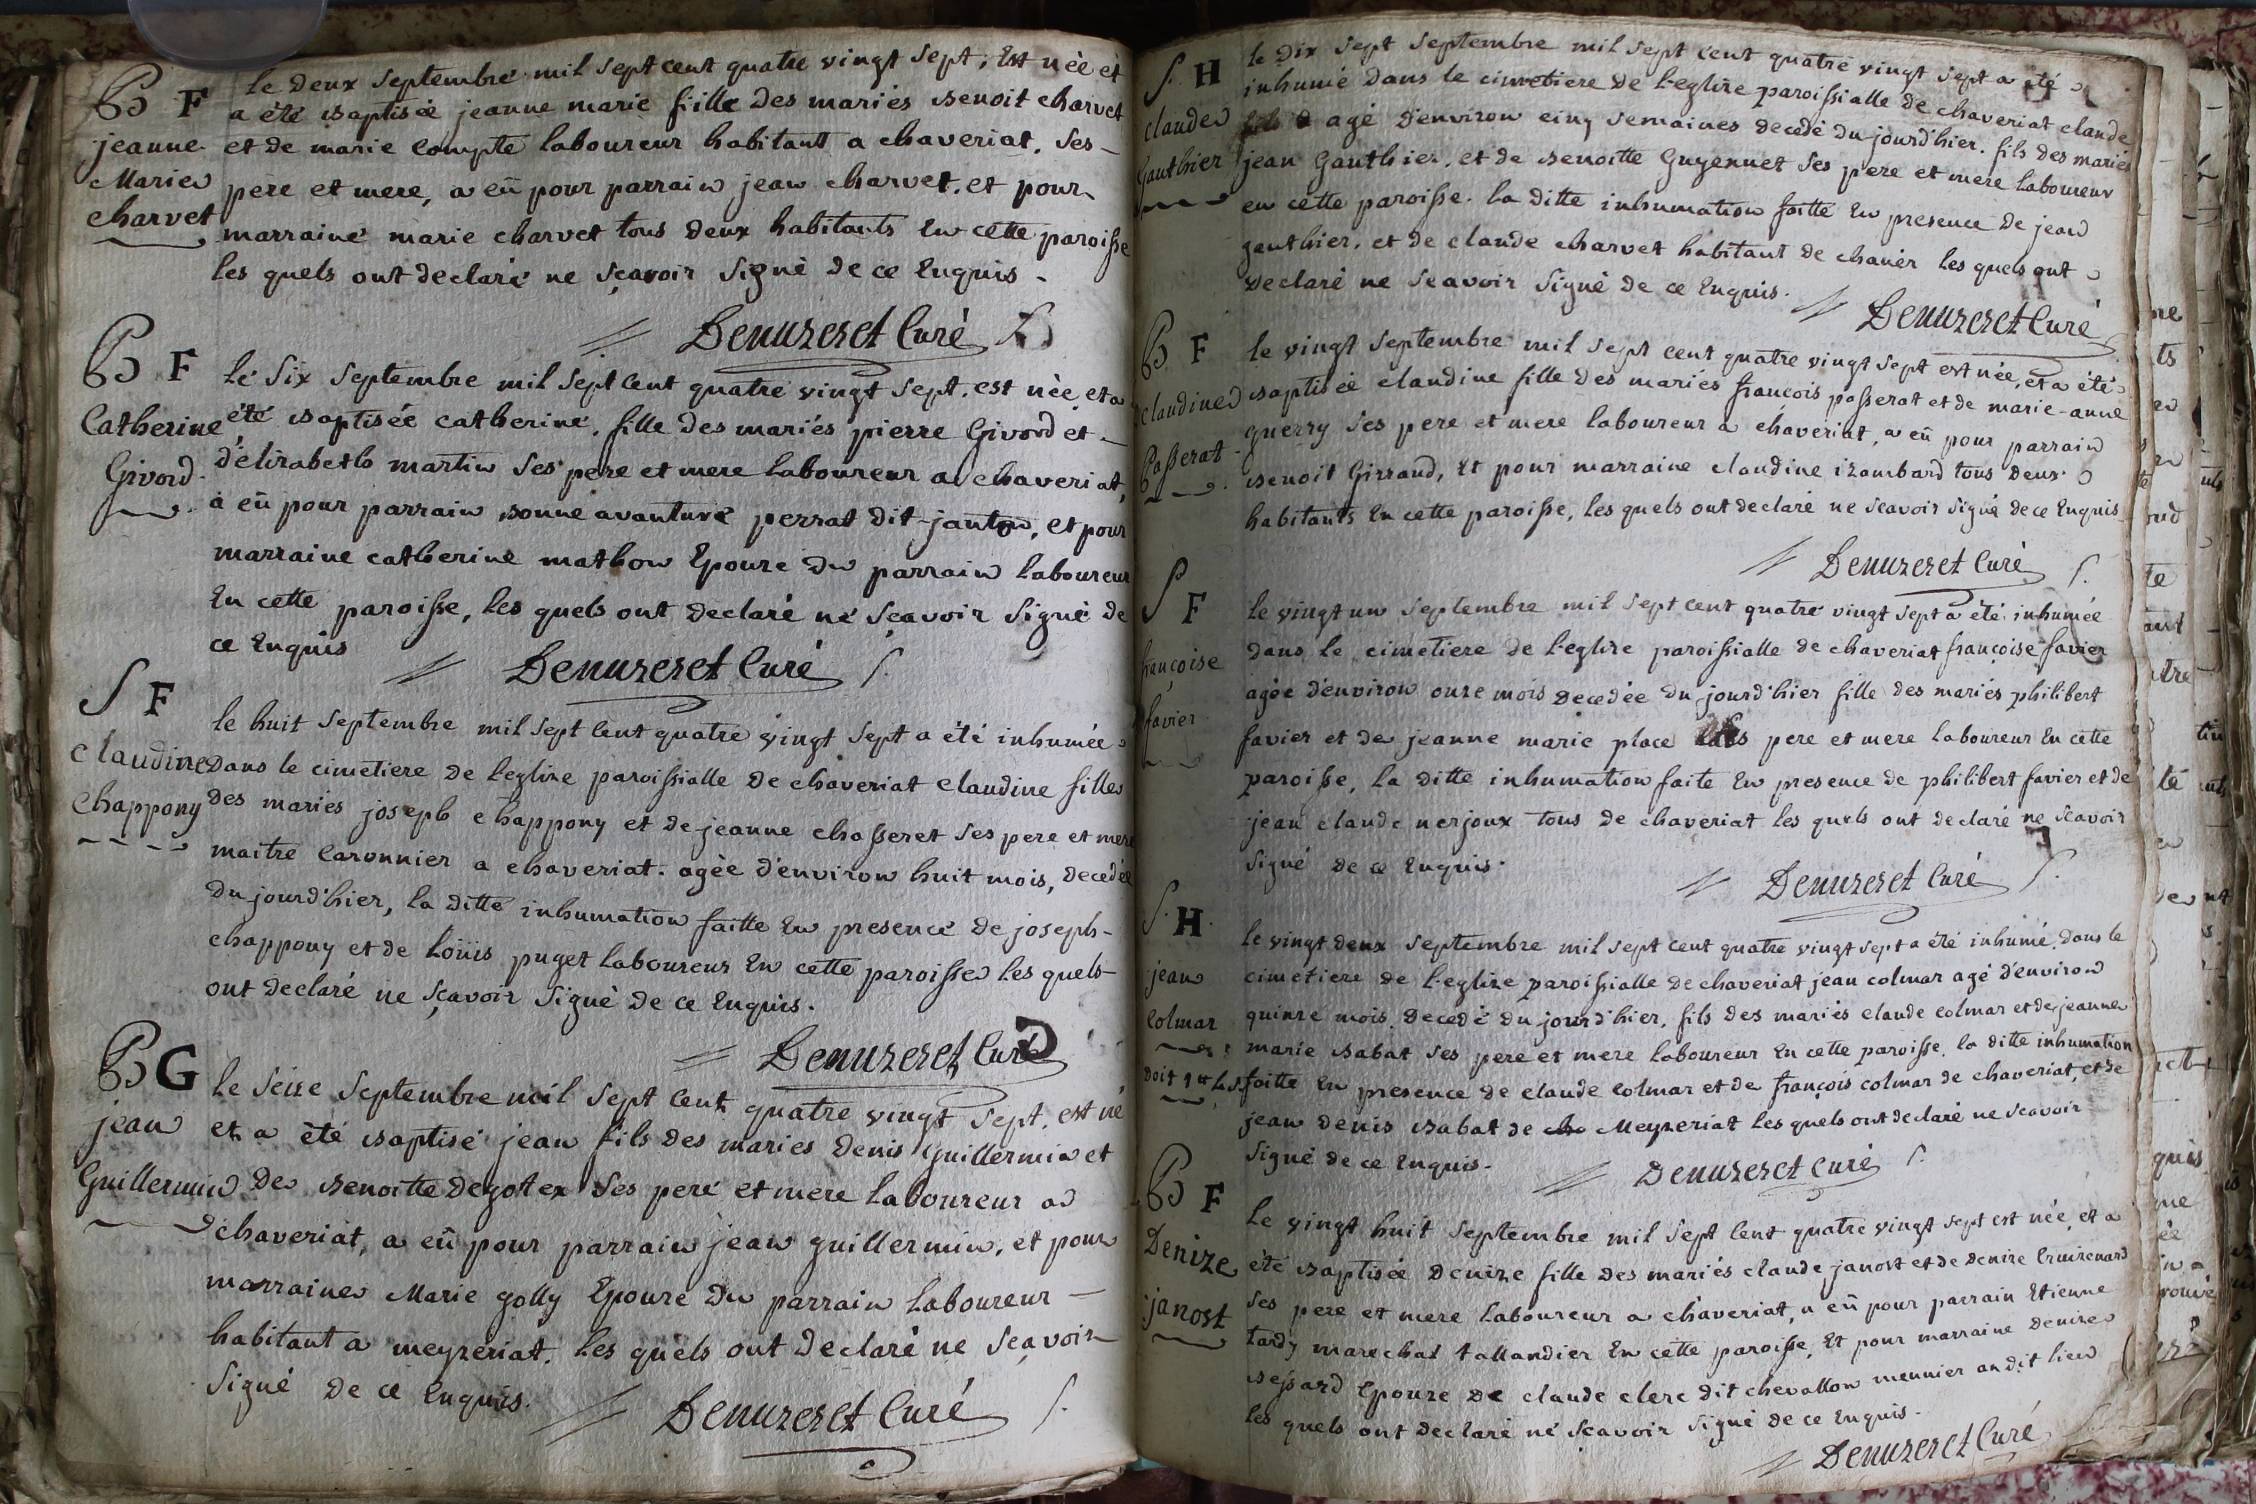 B F
jeanne
Marie
charvet
le deux septembre mil sept cent quatre vingt sept, Est née et
a été baptisée jeanne marie fille des mariés benoit charvet
et de marie Compte laboureur habitant a chaveriat, ses
pere et mere, a eü pour parrain jean charvet, et pour
marraine marie charvet tous deux habitants En cette paroisse
les quels ont declaré ne sçavoir signé de ce Enquis
Denuzeret Curé
B F
Catherine
Givord
le six septembre mil sept Cent quatre vingt sept, est née, et a
été baptisée catherine, fille des mariés pierre Givord et
d'élizabeth martin ses pere et mere laboureur a chaveriat,
a eü pour parrain bonne avanture perrat dit janton, et pour
marraine catherine mathon Epouze du parrain laboureur
En cette paroisse, les quels ont declaré ne sçavoir signé de
ce Enquis
Denuzeret Curé
S F
claudine
Chappony
le huit septembre mil sept Cent quatre vingt sept a été inhumée
dans le cimetiere de l'eglize paroissialle de chaveriat claudine fille
des mariés joseph chappony et de jeanne chasseret ses pere et mere
maitre Caronnier a chaveriat. agée d'environ huit mois, decedée
du jourd'hier, la ditte inhumation faitte En presence de joseph
chappony et de Loüis puget laboureur En cette paroisse les quels
ont declaré ne sçavoir signé de ce Enquis.
Denuzeret Curé
B G
jean
Guillermin
le seize septembre mil sept Cent quatre vingt sept, est né
et a été baptisé jean fils des mariés Denis Guillermin et
de benoitte Degottex ses pere et mere laboureur a
chaveriat, a eü pour parrain jean guillermin, et pour
marraine Marie golly Epouze du parrain laboureur
habitant a meyzeriat. les quels ont declaré ne sçavoir
signé de ce Enquis.
Denuzeret Curé
S. H
claude
Gauthier
le dix sept septembre mil sept cent quatre vingt sept a été
inhumé dans le cimetiere de l'eglize paroissialle de chaveriat claude
agé d'environ cinq semaines decedé du jourd'hier. fils des mariés
jean Gauthier, et de benoitte Guyennet ses pere et mere laboureur
en cette paroisse. la ditte inhumation faitte En presence de jean
gauthier, et de claude charvet habitant de chanér les quels ont
declaré ne sçavoir signé de ce Enquis.
Denuzeret Curé
B F
claudine
Passerat
le vingt septembre mil sept cent quatre vingt sept est née, et a été
baptisée claudine fille des mariés françois passerat et de marie-anne
guerry ses pere et mere laboureur a chaveriat, a eü pour parrain
benoit Girraud, Et pour marraine claudine izambard tous deux
habitants En cette paroisse, les quels ont declaré ne sçavoir signé de ce Enquis
Denuzeret Curé
S F
françoise
favier
le vingt un septembre mil sept cent quatre vingt sept a été inhumée
dans le cimetiere de l'eglize paroissialle de chaveriat françoise favier
agée d'environ onze mois decedée du jourd'hier fille des mariés philibert
favier et de jeanne marie place ses pere et mere laboureur En cette
paroisse, la ditte inhumation faite En presence de philibert favier et de
jean claude nerjoux tous de chaveriat les quels ont declaré ne sçavoir
signé de ce Enquis.
Denuzeret Curé
S. H
jean
Colmar
le vingt deux septembre mil sept cent quatre vingt sept a été inhumé, dans le
cimetiere de l'eglize paroissialle de chaveriat jean colmar agé d'environ
quinze mois decedé du jourd'hier, fils des mariés claude colmar et de jeanne
marie babat ses pere et mere laboureur En cette paroisse, la ditte inhumation
faitte En presence de claude colmar et de françois colmar de chaveriat, et de
jean denis babat de Meyzeriat les quels ont declaré ne sçavoir
signé de ce Enquis.
Denuzeret Curé
B F
Denize
janost
le vingt huit septembre mil sept Cent quatre vingt sept est née, et a
été baptisée Denize fille des mariés claude janost et de Denize Cruizenard
ses pere et mere laboureur a chaveriat, a eü pour parrain Etienne
tardy marechal tallandier En cette paroisse, Et pour marraine Denize
bessard Epouze de claude clerc dit chevallon meunier au dit lieu
les quels ont declaré ne sçavoir signé de ce Enquis.
Denuzeret Curé